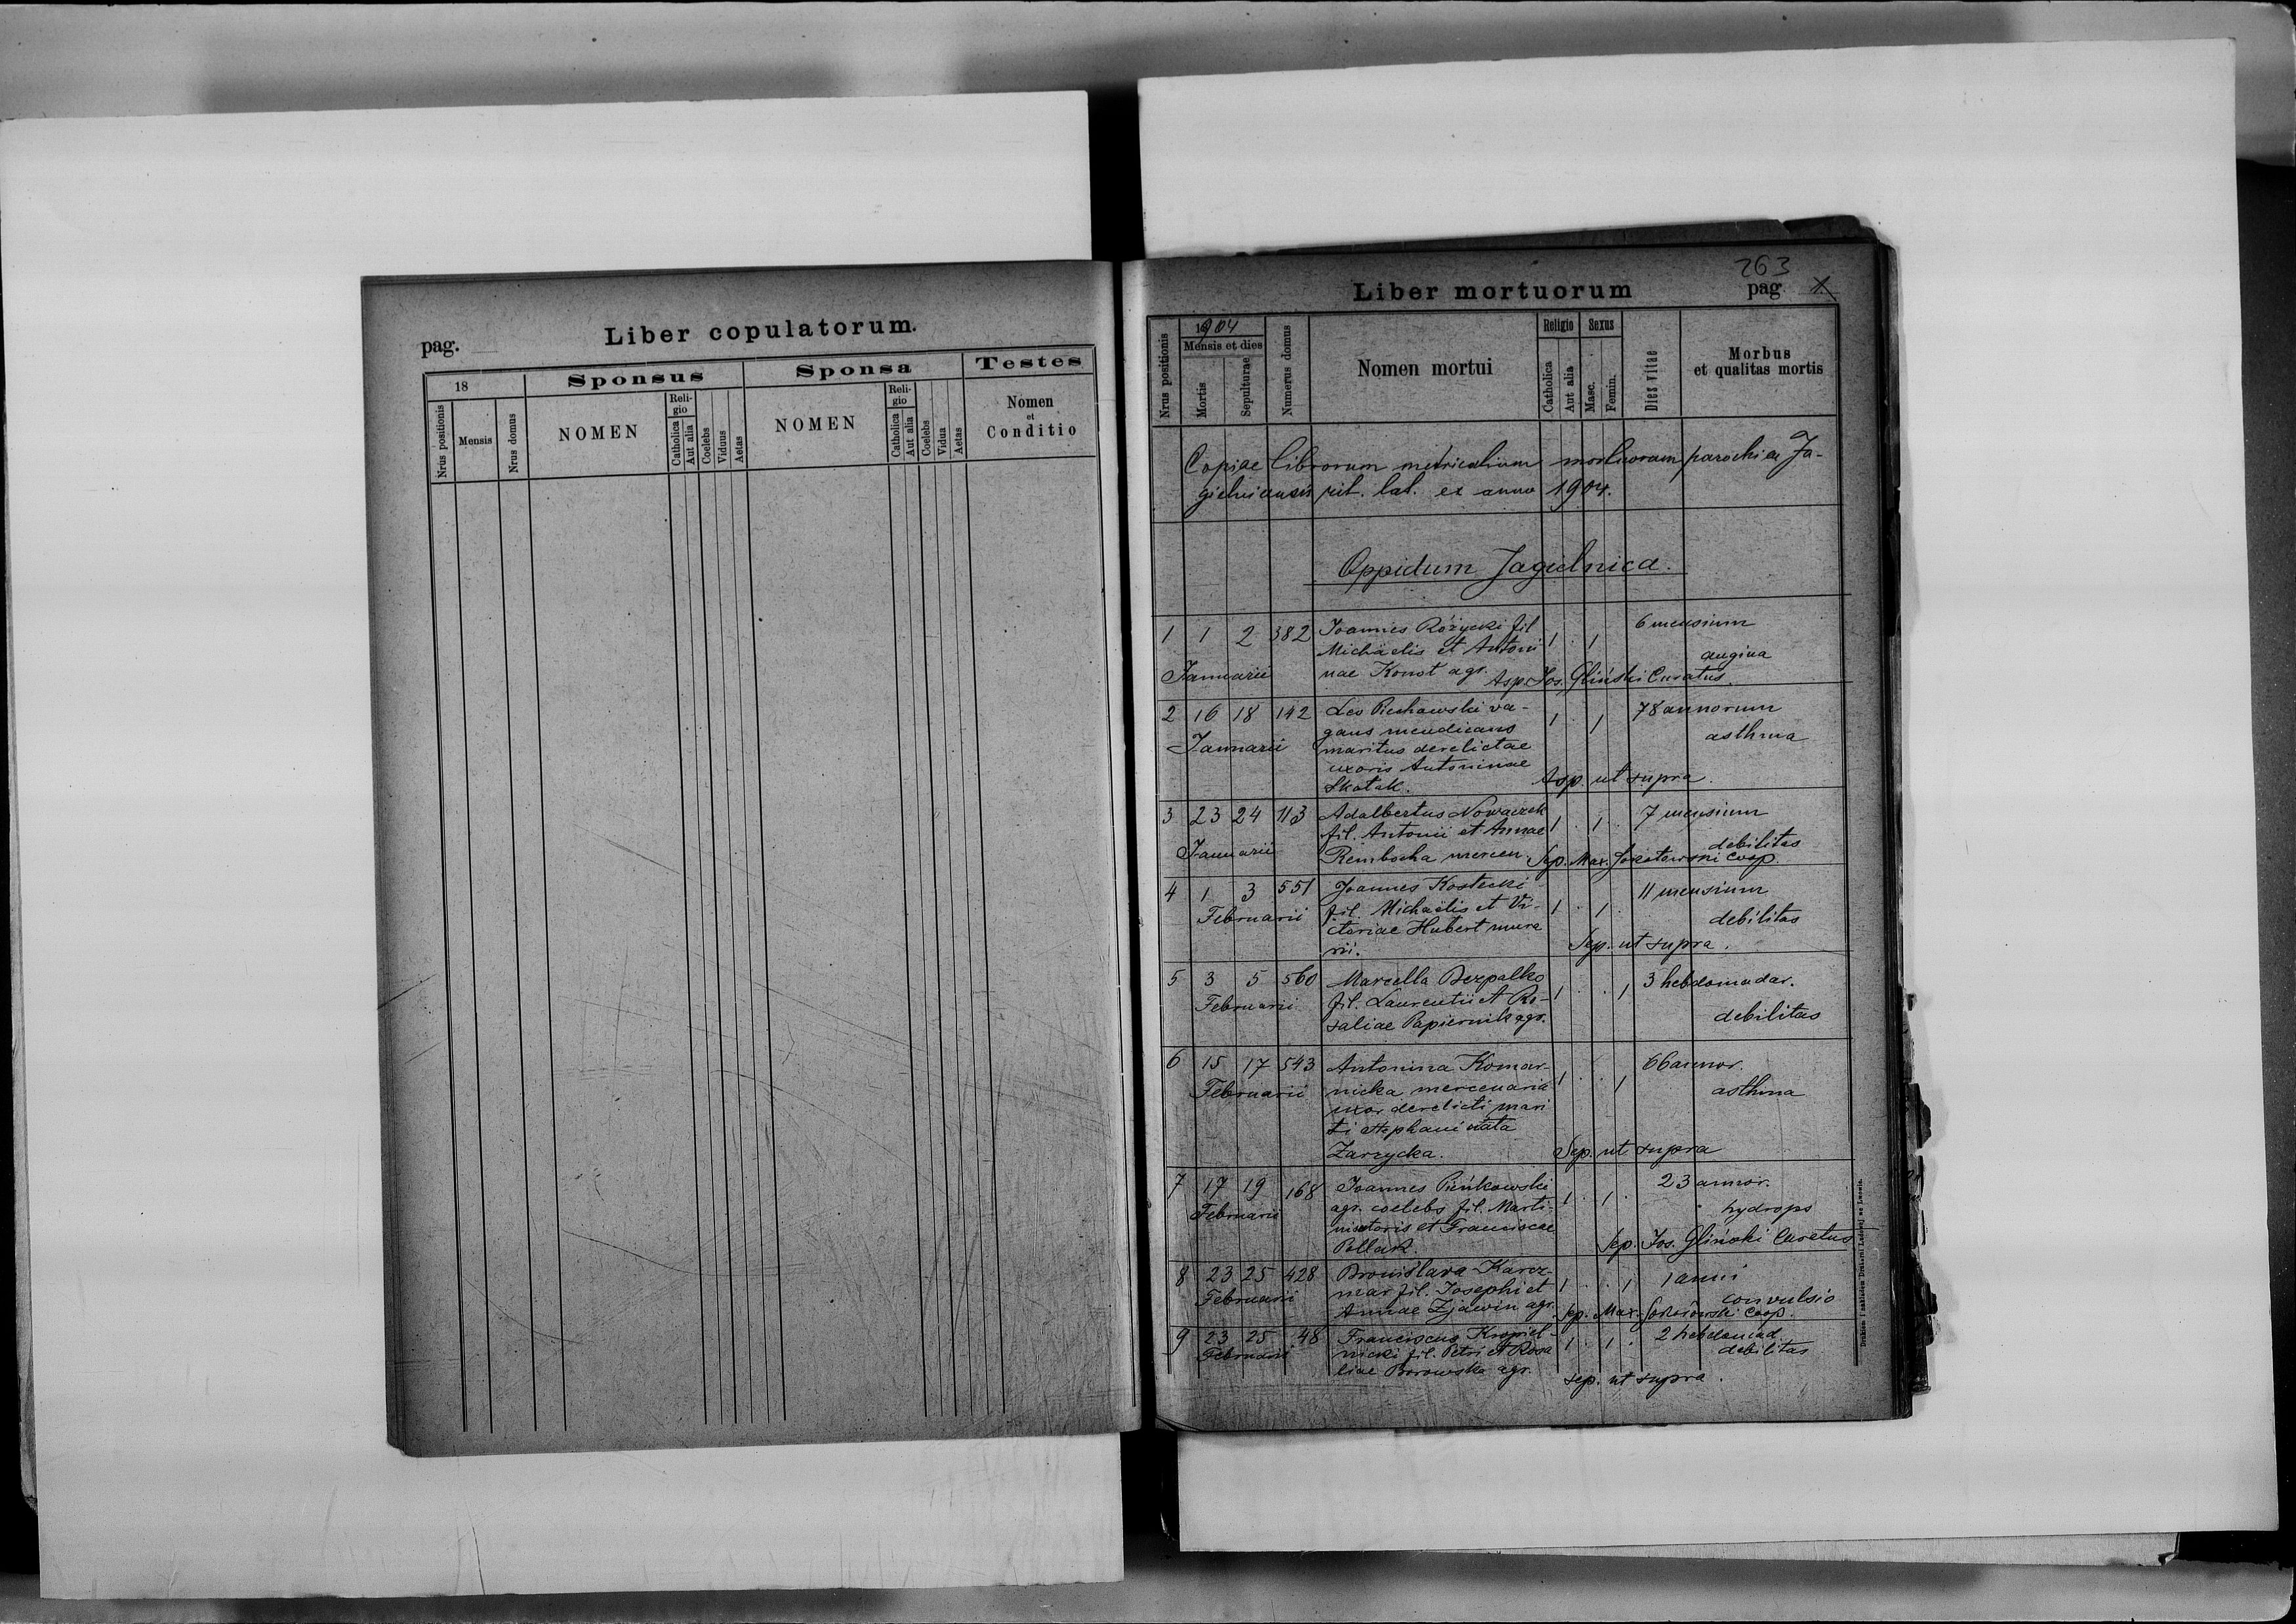 pag.
Liber copulatorum.
18
Sponsus
Sponsa
Testes
Nrus positionis
Mensis
Nrus domus
NOMEN
Reli-
gio
Catholica
Aut alia
Coelebs
Viduus
Aetas
NOMEN
Reli-
gio
Catholica
Aut alia
Coelebs
Vidua
Aetas
Nomen
et
Conditio
263
Liber mortuorum
pag 1
Nrus positionis
1904
Mensis et dies
Mortis
Sepulturae
Numerus domus
Nomen mortui
Religio
Catholica
Aut alia
Sexus
Masc.
Femin.
Dies vitae
Morbus
et qualitas mortis
Copiae librorum metricalium mortuorum parochiae Ja-
gielnicensis rit. lat. ex anno 1904.
Oppidum Jagielnica.
1 1 2 382 Joannes Różycki fil. 1 . 1 6 mensium
Michaelis et Antoni
nae Konot agr. angina
Januarii Asp. Jos. Gliński Curatus.
2 16 18 142 Leo Piechawski va- 1 . 1 78 annorum
gans mendicans asthma
Januarii maritus derelictae
uxoris Antoninae
Skotak. Asp. ut supra.
3 23 24 113 Adalbertus Nowaczek 1 . 1 . 7 mensium
fil. Antonii et Annae
Januarii Rembocha mercen. debilitas
Sep. Max. coop.
4 1 3 551 Joannes Kostecki 1 . 1 . 11 mensium
Februarii fil. Michaelis et Vi-
ctoriae Hubert mura debilitas
rii. Sep. ut supra.
5 3 5 560 Marcella Bezpalko 1 . . 1 3 hebdomadar.
Februarii fil. Laurentii et Ro-
saliae Papiernik agr. debilitas
6 15 17 543 Antonina Komar- 1 . . 1 66 annor.
Februarii nicka mercenaria asthma
uxor derelicti mari
ti Stephani nata
Zarzycka. Sep. ut supra
7 17 19 168 Joannes Pieńkowski 1 . 1 . 23 annor.
Februarii agr. coelebs fil. Marti- hydrops
ni sutoris et Franciscae
Pollak. Sep. Jos. Gliński Curatus
8 23 25 428 Bronislava Karcz- 1 . . 1 1 anni
Februarii mar fil. Josephi et convulsio
Annae Zjawin agr. Sep. Max. coop.
9 23 25 48 Franciscus Kropiel- 1 . 1 . 2 hebdomad.
Februarii nicki fil. Petri et Rosa debilitas
liae Borowska agr. Sep. ut supra.